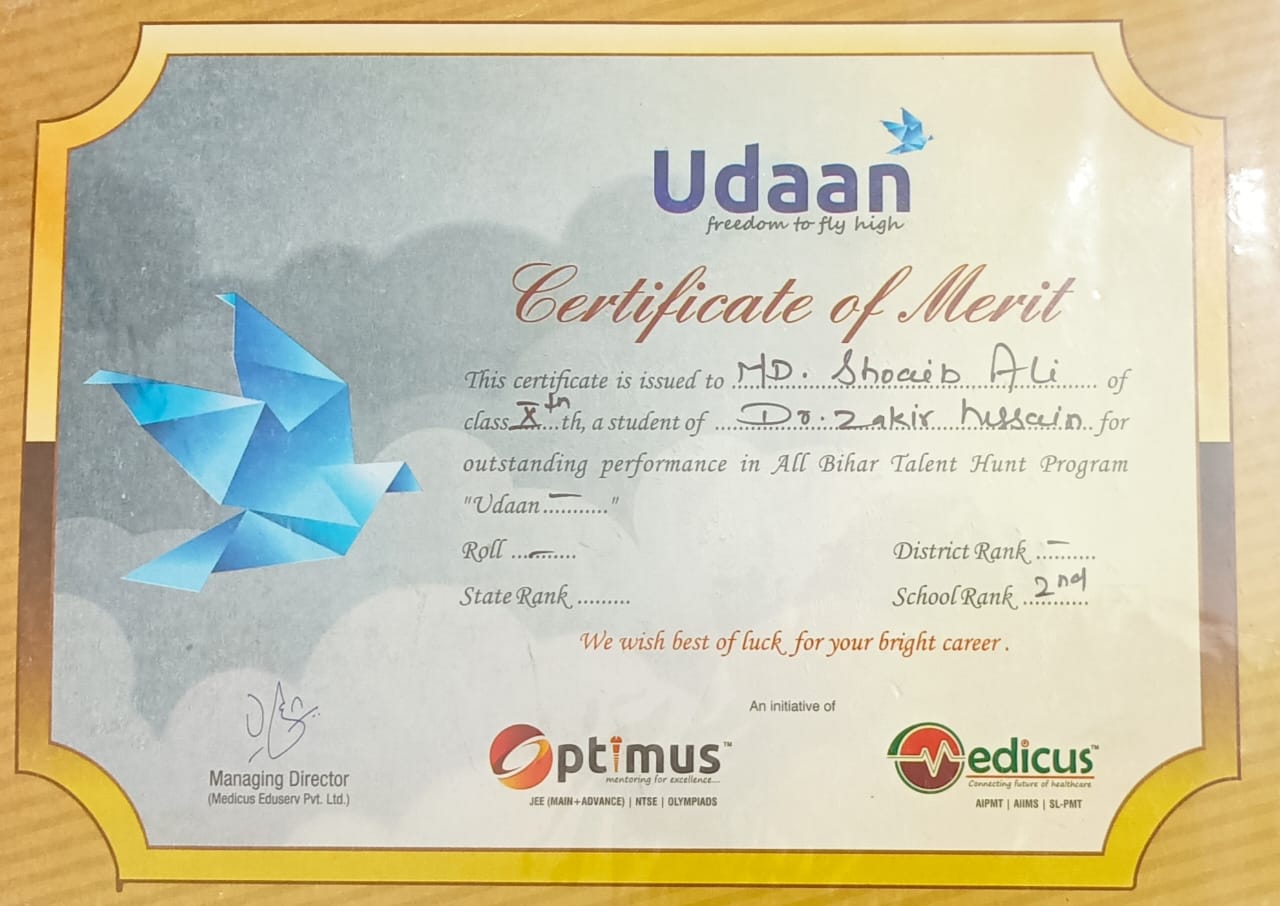 Udaan
freedom to fly high
Certificate of Merit
This certificate is issued to MD. Shoaib Ali of
class Xth th, a student of Dr. Zakir Hussain for
outstanding performance in All Bihar Talent Hunt Program
"Udaan – .........."
Roll ...–.......
District Rank –..........
State Rank .........
School Rank 2nd
We wish best of luck for your bright career .
An initiative of
Managing Director
(Medicus Eduserv Pvt. Ltd.)
Optimus™
mentoring for excellence....
JEE (MAIN+ADVANCE) | NTSE | OLYMPIADS
Medicus™
Connecting future of healthcare
AIPMT | AIIMS | SL-PMT